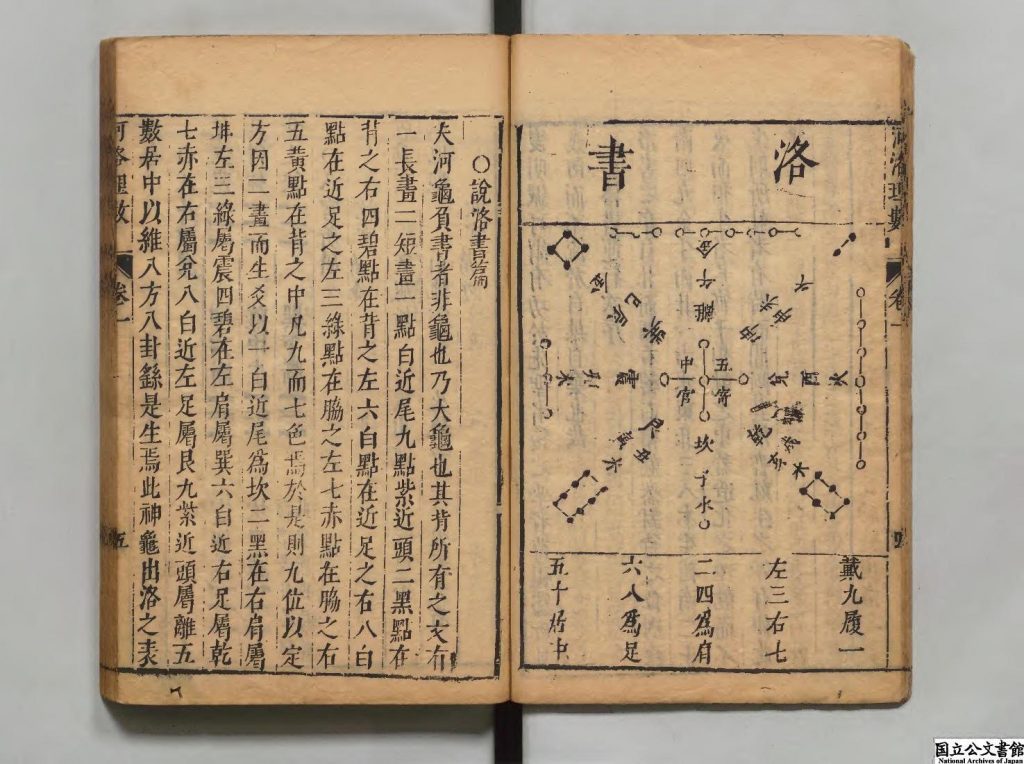 河洛理數 卷一 四
洛書
金午離
兌酉火
五寄
中官
震卯木
坎子水
戴九履一
左三右七
二四為肩
六八為足
五十居中
○說洛書篇
夫河龜負書者非龜也乃大龜也其背所有之文有
一長畫二短畫一點白近尾九點紫近頭二黑點在
背之右四碧點在背之左六白點在近足之右八白
點在近足之左三綠點在脇之左七赤點在脇之右
五黃點在背之中凡九而七色焉於是則九位以定
方因二畫而生爻以一白近尾為坎二黑在右肩屬
坤左三綠屬震四碧在左肩屬巽六白近右足屬乾
七赤在右屬兌八白近左足屬艮九紫近頭屬離五
數居中以維八方八卦繇是生焉此神龜出洛之表
河洛理數 卷一 五
国立公文書館
National Archives of Japan